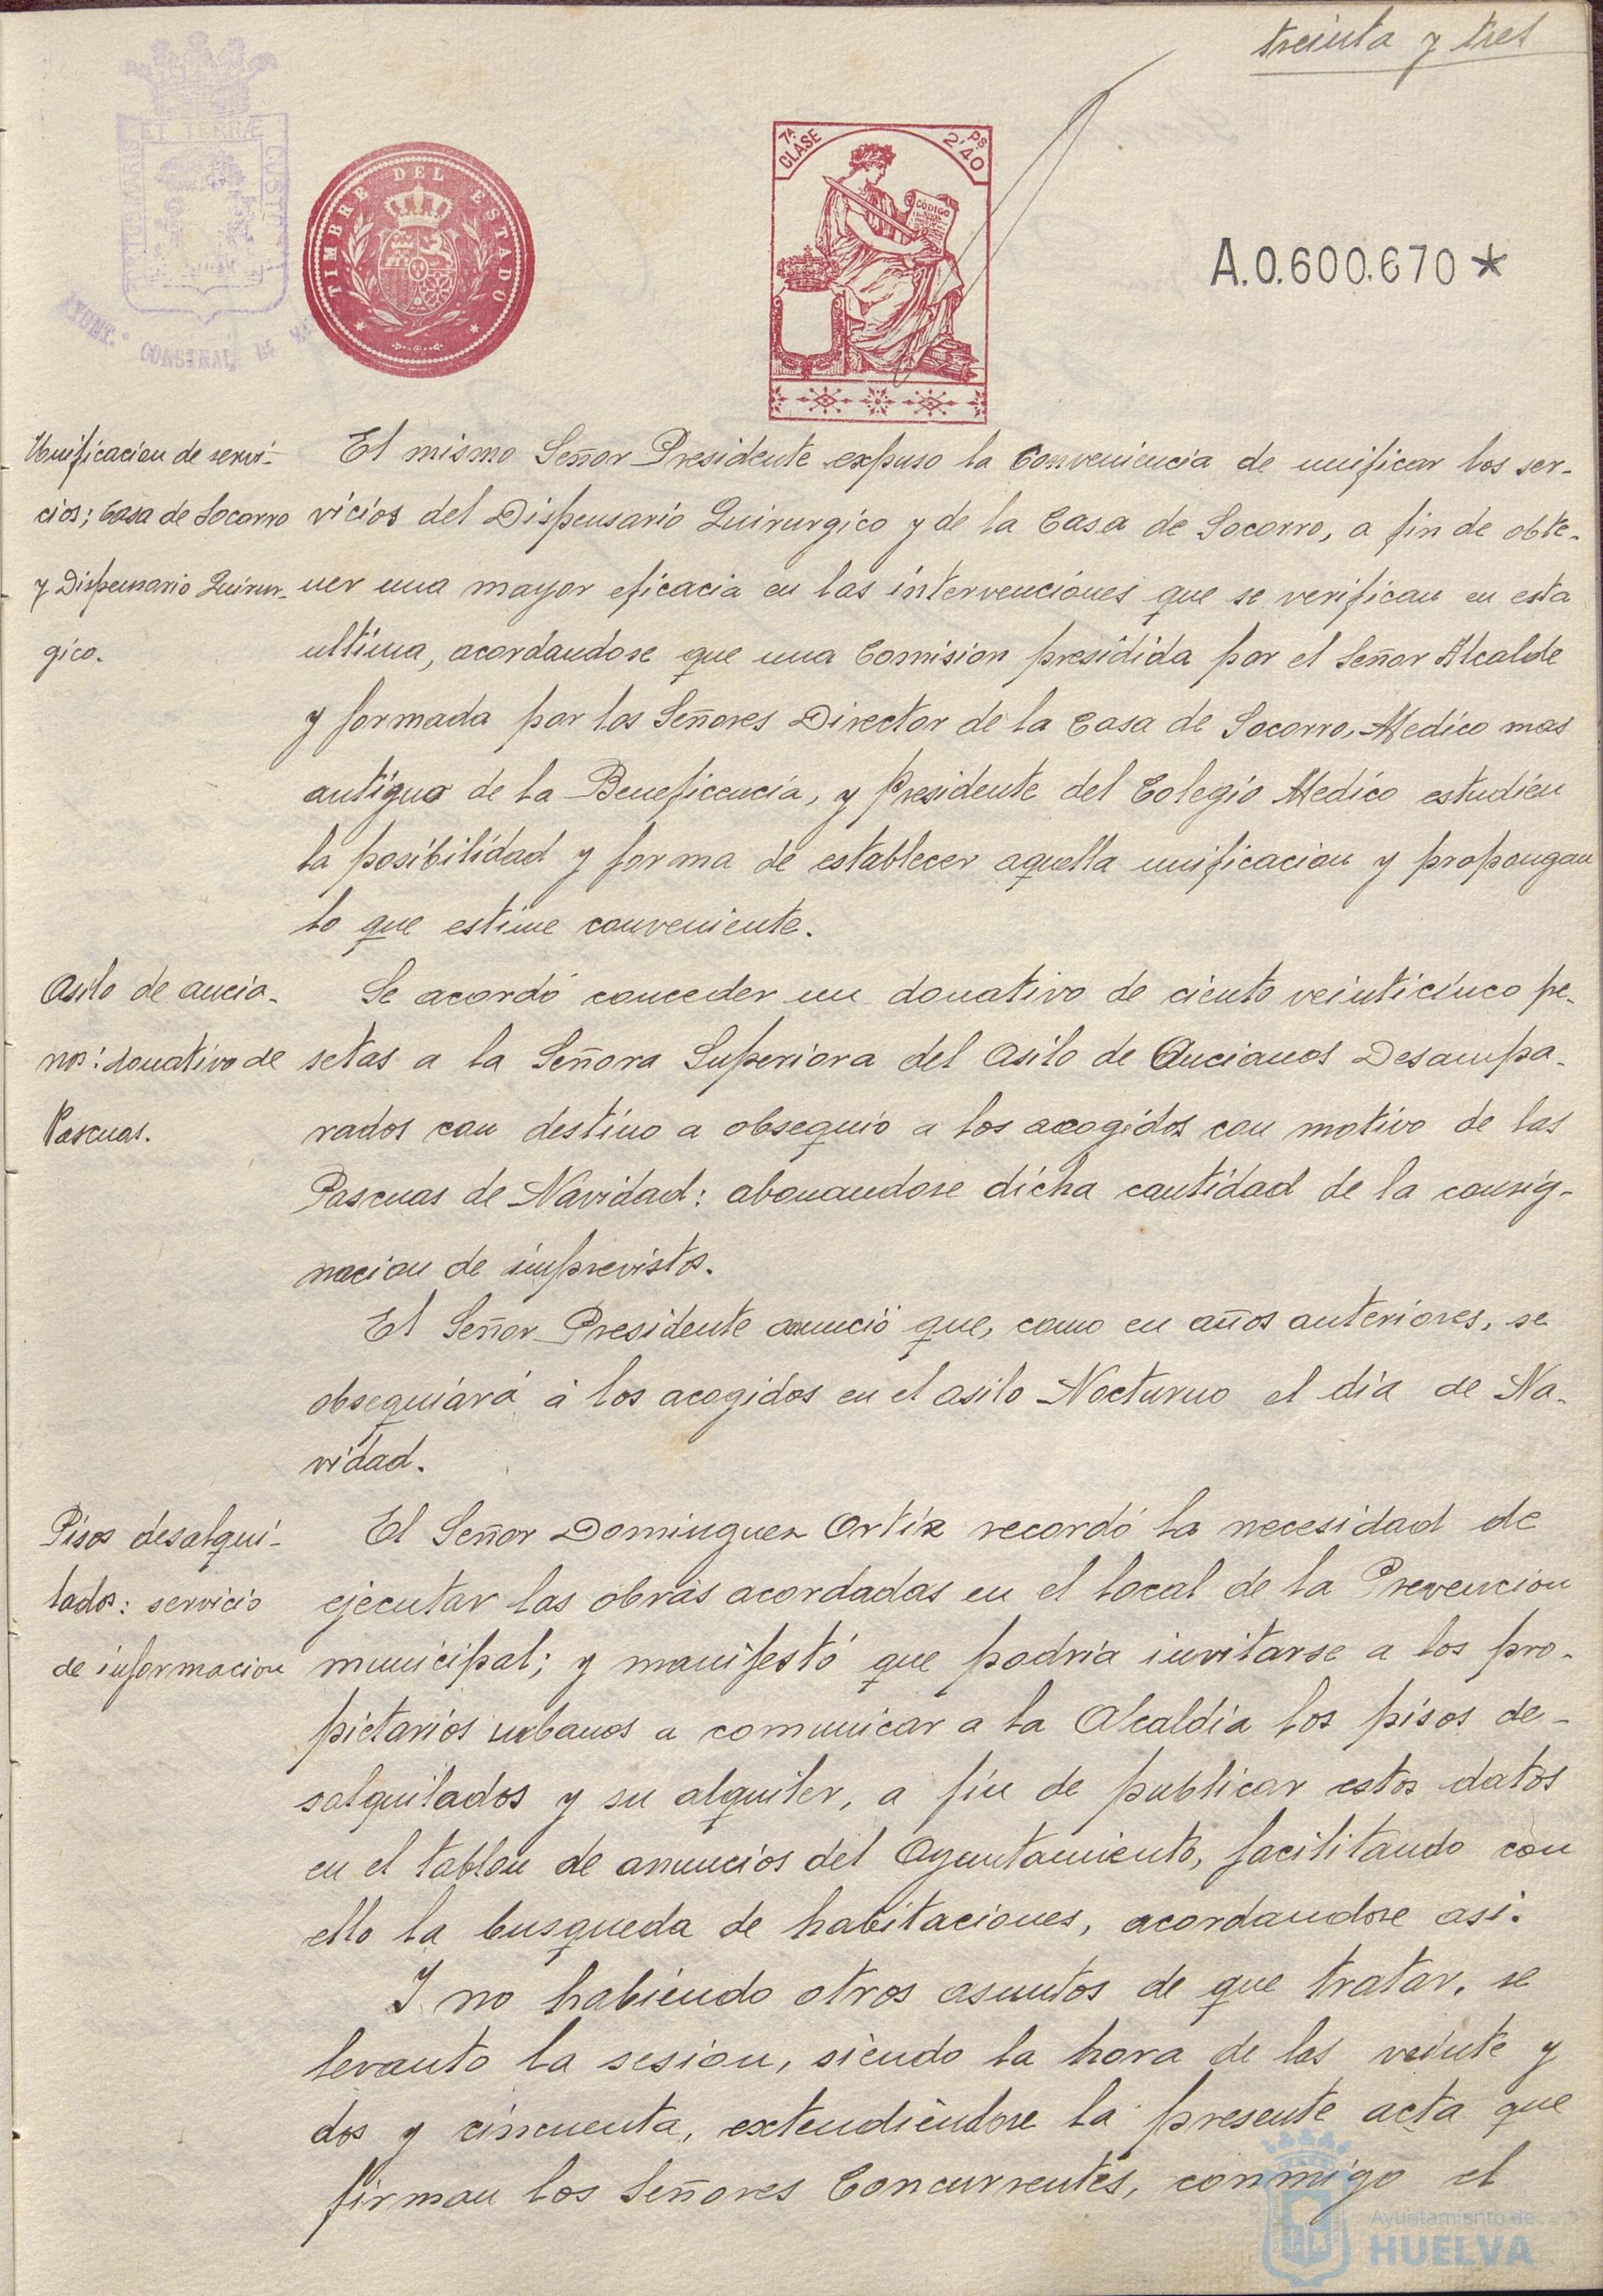 treinta y tres
PORTUS MARIS ET TERRÆ CUSTODIA
AYUNT.º CONSTNAL. DE
TIMBRE DEL ESTADO
7ª CLASE
2'40 PS
CODIGO
A.0.600.670*
Unificacion de servi-
cios; Casa de Socorro
y Dispensario Quirur-
gico.
El mismo Señor Presidente expuso la Conveniencia de unificar los ser-
vicios del Dispensario Quirurgico y de la Casa de Socorro, a fin de obte-
ner una mayor eficacia en las intervenciones que se verifican en esta
ultima, acordandose que una Comision presidida por el Señor Alcalde
y formada por los Señores Director de la Casa de Socorro, Medico mas
antiguo de la Beneficencia, y Presidente del Colegio Medico estudien
la posibilidad y forma de establecer aquella unificacion y propongan
lo que estime conveniente.
Asilo de ancia-
nos: donativo de
Pascuas.
Se acordó conceder un donativo de ciento veinticinco pe-
setas a la Señora Superiora del Asilo de Ancianos Desampa-
rados con destino a obsequio a los acogidos con motivo de las
Pascuas de Navidad: abonandose dicha cantidad de la consig-
nacion de imprevistos.
El Señor Presidente anunció que, como en años anteriores, se
obsequiará á los acogidos en el asilo Nocturno el dia de Na-
vidad.
Pisos desalqui-
lados: servicio
de informacion
El Señor Dominguez Ortiz recordó la necesidad de
ejecutar las obras acordadas en el local de la Prevencion
municipal; y manifestó que podria invitarse a los pro-
pietarios urbanos a comunicar a la Alcaldia los pisos de-
salquilados y su alquiler, a fin de publicar estos datos
en el tablon de anuncios del Ayuntamiento, facilitando con
ello la busqueda de habitaciones, acordandose asi.
Y no habiendo otros asuntos de que tratar, se
levanto la sesion, siendo la hora de las veinte y
dos y cincuenta, extendiéndose la presente acta que
firman los Señores Concurrentes, conmigo el
Ayuntamiento de
HUELVA